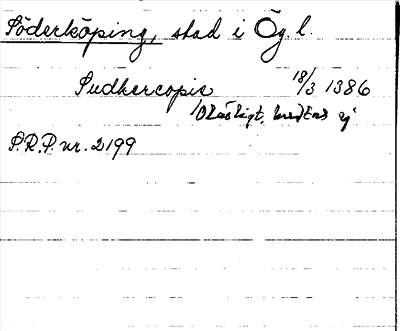 Söderköping, stad i Ög.l.
Sudhercopie 18/3 1386
Oläsligt, ej
S.R.P. nr. 2199